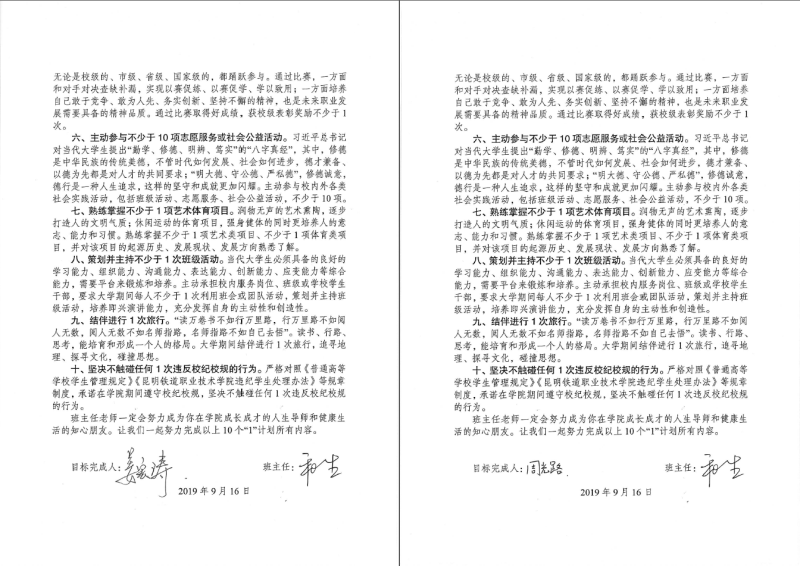 无论是校级的、市级、省级、国家级的，都踊跃参与。通过比赛，一方面
和对手对决查缺补漏，实现以赛促练、以赛促学、学以致用；一方面培养
自己敢于竞争、敢为人先、务实创新、坚持不懈的精神，也是未来职业发
展需要具备的精神品质。通过比赛取得好成绩，获校级表彰奖励不少于 1
次。
六、主动参与不少于 10 项志愿服务或社会公益活动。习近平总书记
对当代大学生提出“勤学、修德、明辨、笃实”的“八字真经”，其中，修德
是中华民族的传统美德，不管时代如何发展、社会如何进步，德才兼备、
以德为先都是对人才的共同要求；“明大德、守公德、严私德”，修德诚意，
德行是一种人生追求，这样的坚守和成就更加闪耀。主动参与校内外各类
社会实践活动，包括班级活动、志愿服务、社会公益活动，不少于 10 项。
七、熟练掌握不少于 1 项艺术体育项目。润物无声的艺术熏陶，逐步
打造人的文明气质；休闲运动的体育项目，强身健体的同时更培养人的意
志、能力和习惯。熟练掌握不少于 1 项艺术类项目、不少于 1 项体育类项
目，并对该项目的起源历史、发展现状、发展方向熟悉了解。
八、策划并主持不少于 1 次班级活动。当代大学生必须具备的良好的
学习能力、组织能力、沟通能力、表达能力、创新能力、应变能力等综合
能力，需要平台来锻炼和培养。主动承担校内服务岗位、班级或学校学生
干部，要求大学期间每人不少于 1 次利用班会或团日活动，策划并主持班
级活动，培养即兴演讲能力，充分发挥自身的主动性和创造性。
九、结伴进行 1 次旅行。“读万卷书不如行万里路，行万里路不如阅
人无数，阅人无数不如名师指路，名师指路不如自己去悟”。读书、行路、
思考，能培育和形成一个人的格局。大学期间结伴进行 1 次旅行，追寻地
理、探寻文化，碰撞思想。
十、坚决不触碰任何 1 次违反校纪校规的行为。严格对照《普通高等
学校学生管理规定》《昆明铁道职业技术学院违纪学生处理办法》等规章
制度，承诺在学院期间遵守校纪校规，坚决不触碰任何 1 次违反校纪校规
的行为。
班主任老师一定会努力成为你在学院成长成才的人生导师和健康生
活的知心朋友。让我们一起努力完成以上 10 个“1”计划所有内容。
目标完成人： 班主任：
2019 年 9 月 16 日
无论是校级的、市级、省级、国家级的，都踊跃参与。通过比赛，一方面
和对手对决查缺补漏，实现以赛促练、以赛促学、学以致用；一方面培养
自己敢于竞争、敢为人先、务实创新、坚持不懈的精神，也是未来职业发
展需要具备的精神品质。通过比赛取得好成绩，获校级表彰奖励不少于 1
次。
六、主动参与不少于 10 项志愿服务或社会公益活动。习近平总书记
对当代大学生提出“勤学、修德、明辨、笃实”的“八字真经”，其中，修德
是中华民族的传统美德，不管时代如何发展、社会如何进步，德才兼备、
以德为先都是对人才的共同要求；“明大德、守公德、严私德”，修德诚意，
德行是一种人生追求，这样的坚守和成就更加闪耀。主动参与校内外各类
社会实践活动，包括班级活动、志愿服务、社会公益活动，不少于 10 项。
七、熟练掌握不少于 1 项艺术体育项目。润物无声的艺术熏陶，逐步
打造人的文明气质；休闲运动的体育项目，强身健体的同时更培养人的意
志、能力和习惯。熟练掌握不少于 1 项艺术类项目、不少于 1 项体育类项
目，并对该项目的起源历史、发展现状、发展方向熟悉了解。
八、策划并主持不少于 1 次班级活动。当代大学生必须具备的良好的
学习能力、组织能力、沟通能力、表达能力、创新能力、应变能力等综合
能力，需要平台来锻炼和培养。主动承担校内服务岗位、班级或学校学生
干部，要求大学期间每人不少于 1 次利用班会或团日活动，策划并主持班
级活动，培养即兴演讲能力，充分发挥自身的主动性和创造性。
九、结伴进行 1 次旅行。“读万卷书不如行万里路，行万里路不如阅
人无数，阅人无数不如名师指路，名师指路不如自己去悟”。读书、行路、
思考，能培育和形成一个人的格局。大学期间结伴进行 1 次旅行，追寻地
理、探寻文化，碰撞思想。
十、坚决不触碰任何 1 次违反校纪校规的行为。严格对照《普通高等
学校学生管理规定》《昆明铁道职业技术学院违纪学生处理办法》等规章
制度，承诺在学院期间遵守校纪校规，坚决不触碰任何 1 次违反校纪校规
的行为。
班主任老师一定会努力成为你在学院成长成才的人生导师和健康生
活的知心朋友。让我们一起努力完成以上 10 个“1”计划所有内容。
目标完成人： 班主任：
2019 年 9 月 16 日